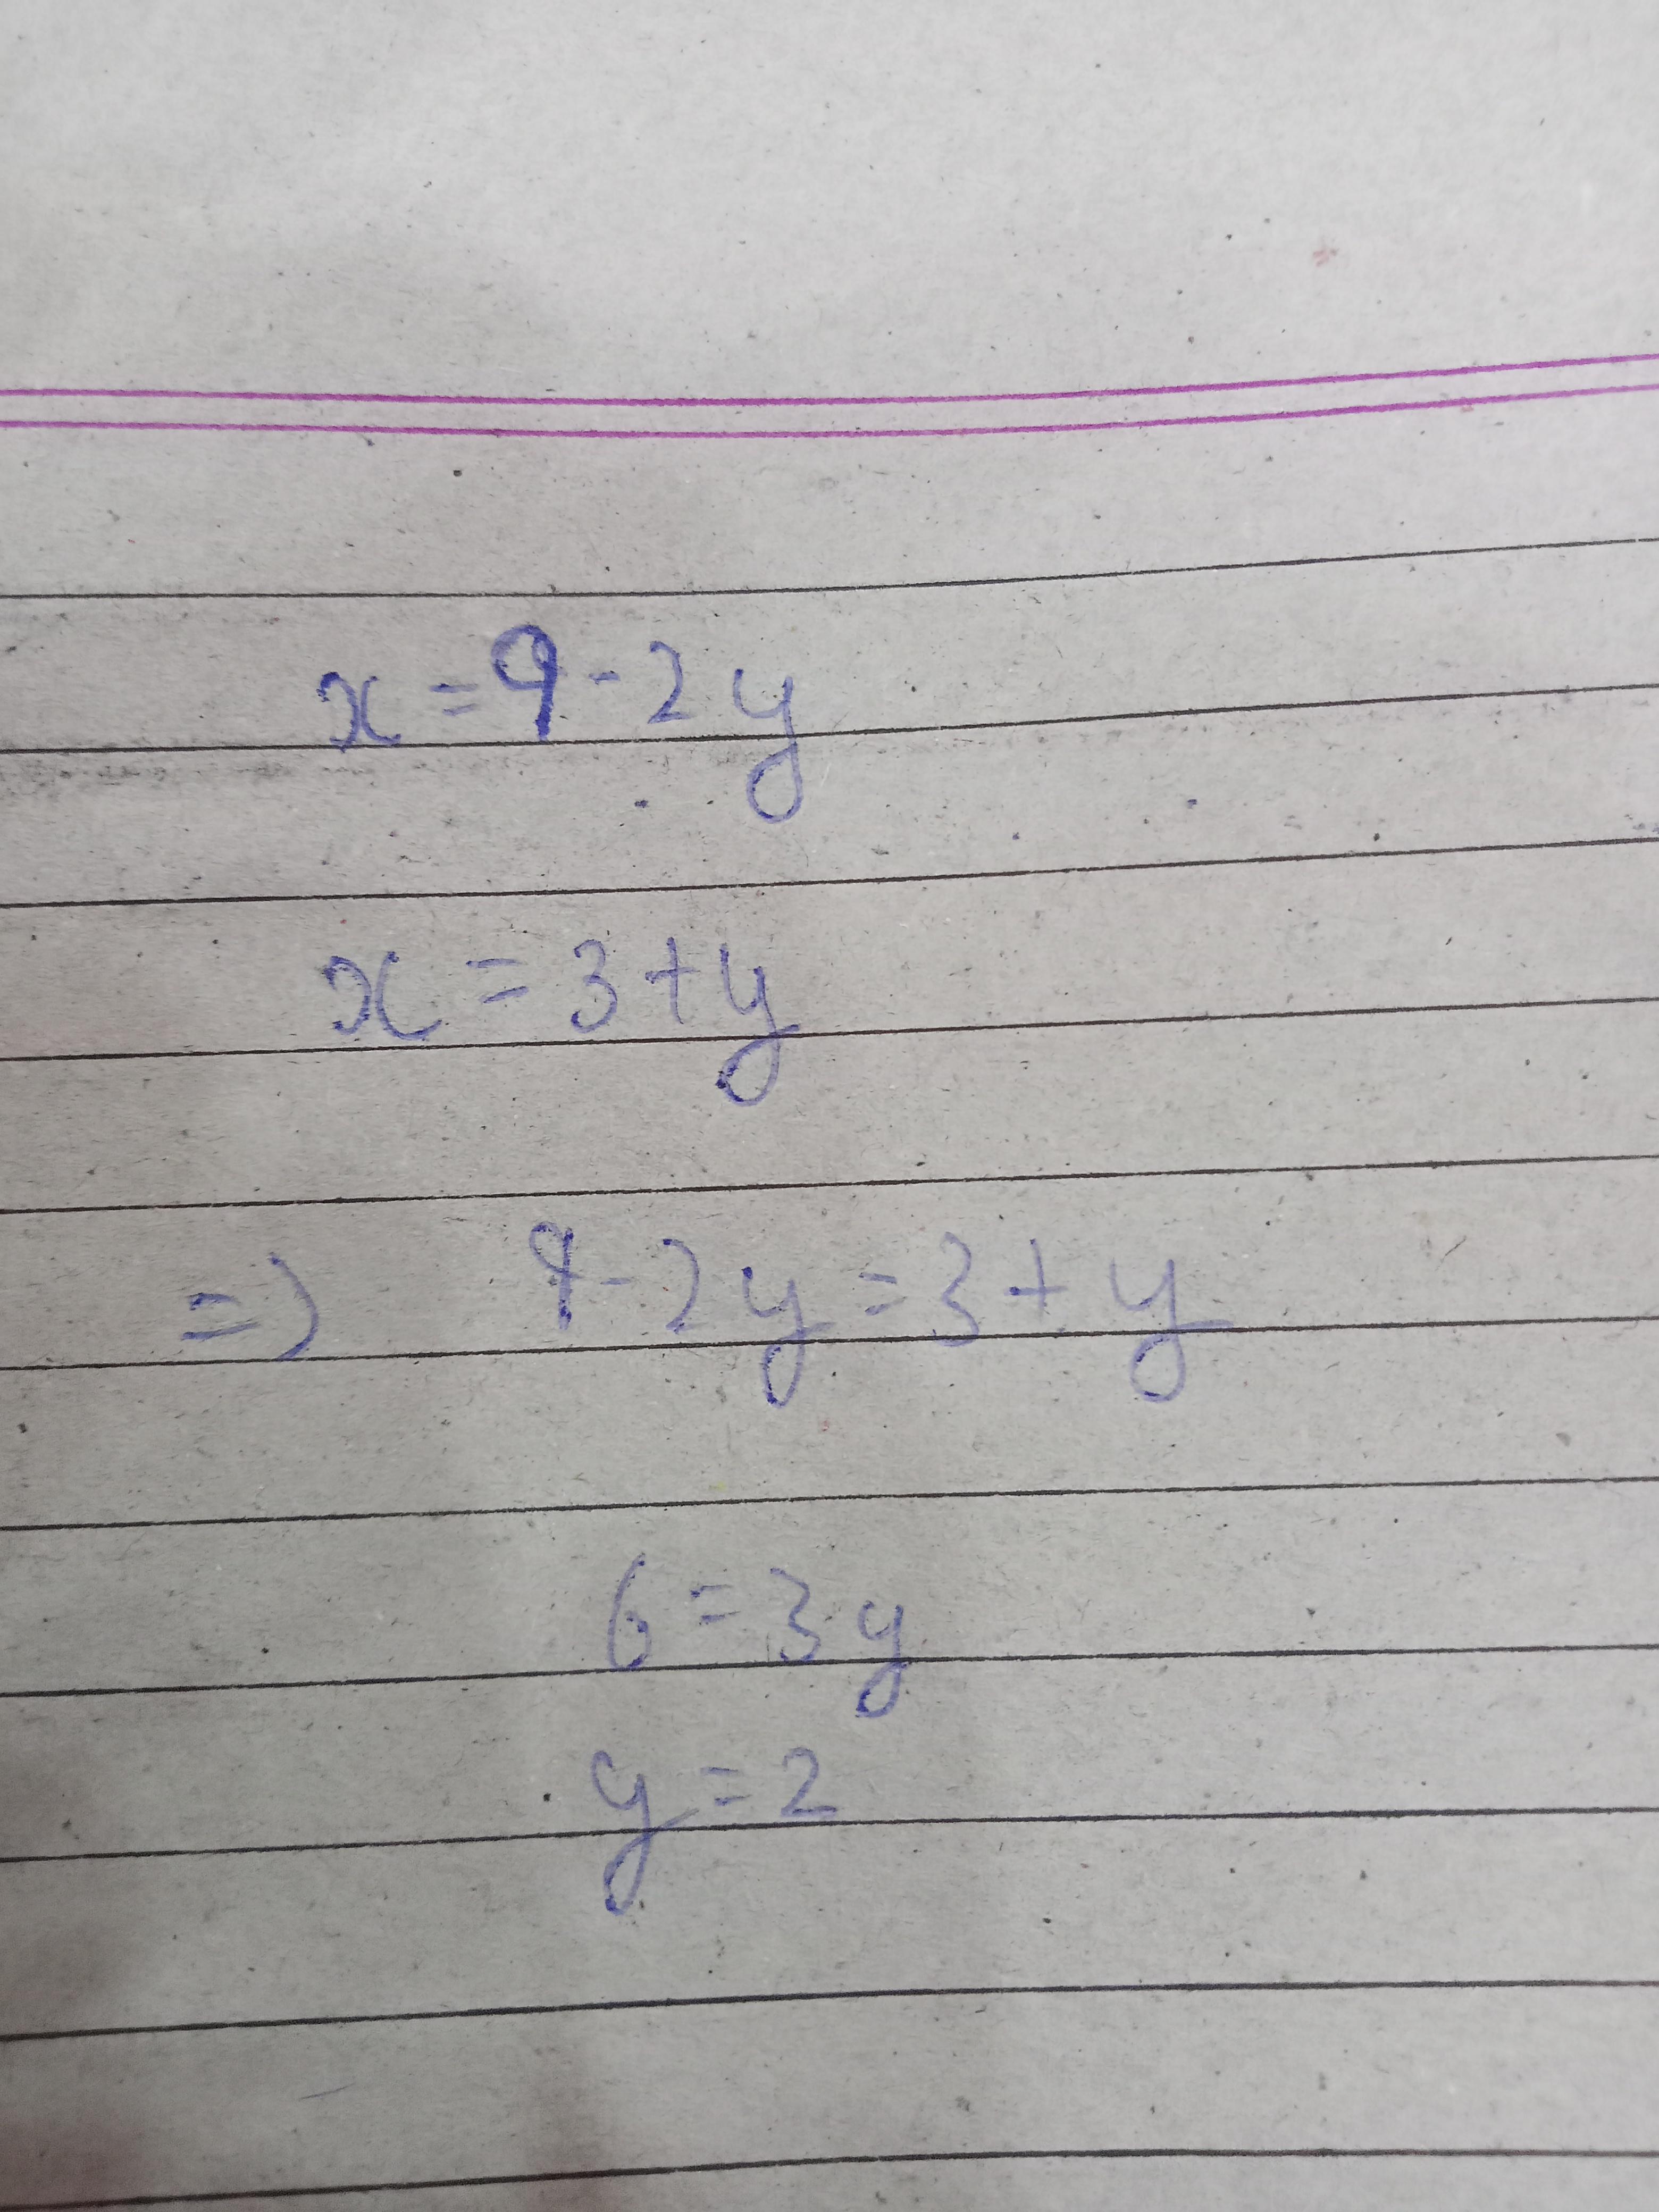 x = 9 - 2y
x = 3 + y
=) 9 - 2y = 3 + y
6 = 3y
y = 2